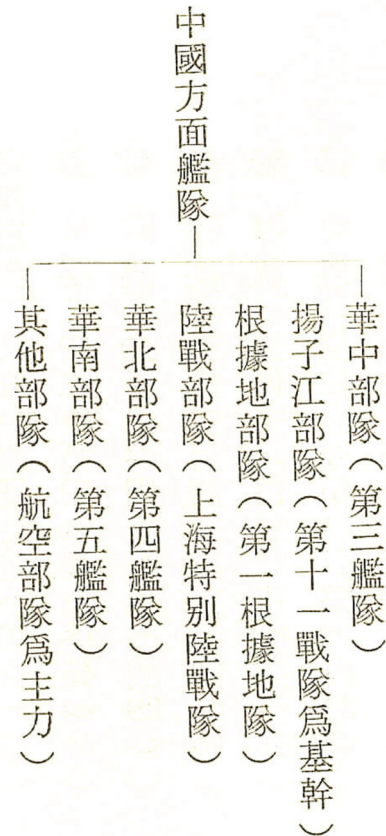 中國方面艦隊
華中部隊（第三艦隊）
揚子江部隊（第十一戰隊爲基幹）
根據地部隊（第一根據地隊）
陸戰部隊（上海特別陸戰隊）
華北部隊（第四艦隊）
華南部隊（第五艦隊）
其他部隊（航空部隊爲主力）